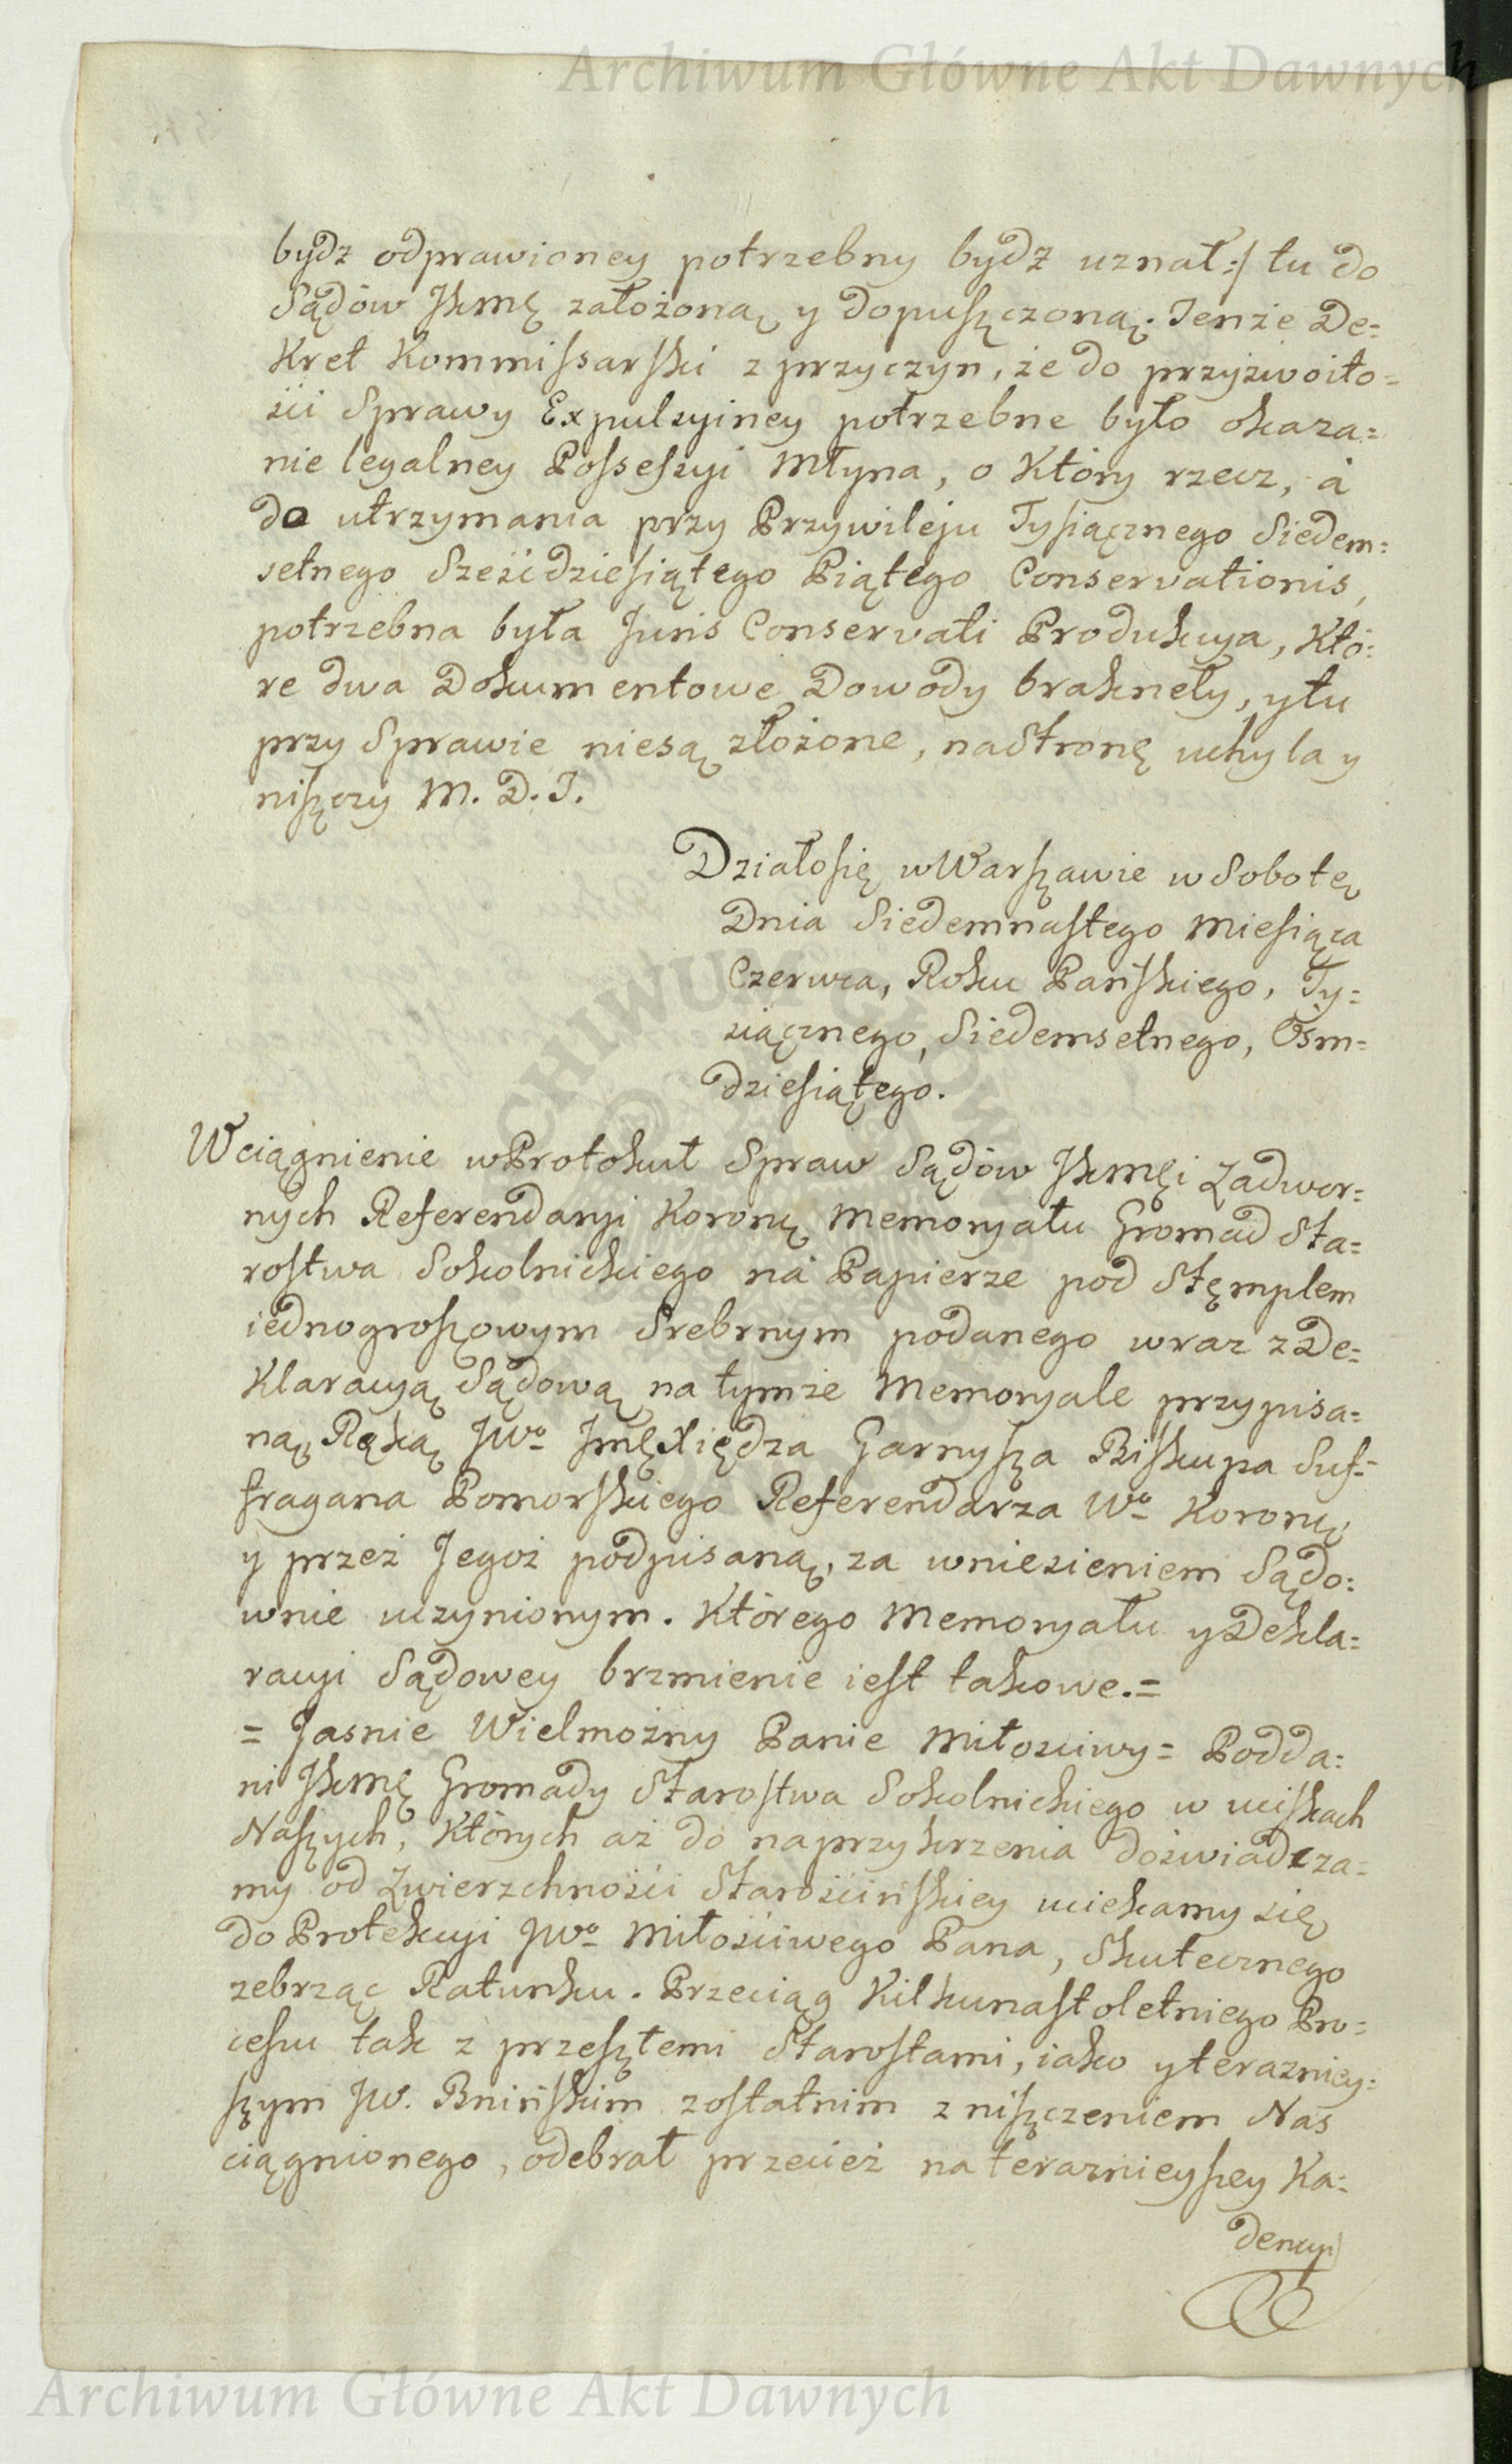 Archiwum Główne Akt Dawnych
bydz odprawioney potrzebny bydz uznał:/ tu do
Sądów Jkmę założoną y dopuszczoną. Tenże De=
kret Kommissarski z przyczyn, że do przyzwoito=
ści Sprawy Expulsyiney potrzebne było okaza=
nie legalney Possessyi Młyna, o który rzecz, á
do utrzymania przy Przywileju Tysiącznego Siedem=
setnego Sześćdziesiątego Piątego Conservationis,
potrzebna była Juris Conservati Produkcya, któ=
re dwa Dokumentowe Dowody braknęły, y tu
przy Sprawie niesą złożone, na Stronę uchyla y
niszczy M. D. J.
Działo się w Warszawie w Sobotę
Dnia Siedemnastego Miesiąca
Czerwca, Roku Pańskiego, Ty=
siącznego, Siedemsetnego, Osm=
dziesiątego.
Wciągnienie w Protokuł Spraw Sądów Jkmęi Zadwor=
nych Referendaryi Koronę Memoryału Gromad Sta=
rostwa Sokolnickiego ná Papierze pod Stęmplem
iednogroszowym Srebrnym podanego wraz z De=
klaracyą Sądową na tymże Memoryale przypisa=
ną, Ręką JWo Jmę Xiędza Garnysza Biskupa Suf=
fragana Pomorskiego Referendarza Wo Koronę
y przez Jegoż podpisaną, za wniesieniem Sądo=
wnie uczynionym. Którego Memoryału y Dekla=
racyi Sądowey brzmienie iest takowe.=
= Jasnie Wielmożny Panie Miłościwy= Podda=
ni Jkmę Gromady Starostwa Sokolnickiego w uciskach
Naszych, których aż do naprzykrzenia doświadcza=
my od Zwierzchności Starościńskiey uciekamy się
do Protekcyi JWo Miłościwego Pana, Skutecznego
zebrząc Ratunku. Przeciąg Kilkunastoletniego Pro=
cessu tak z przeszłemi Starostami, iako y teraźniey=
szym JW. Bnińskim zostatnim zniszczeniem Nas
ciągnionego, odebrał przecież na teraznieyszey Ka=
dencyi
Archiwum Główne Akt Dawnych